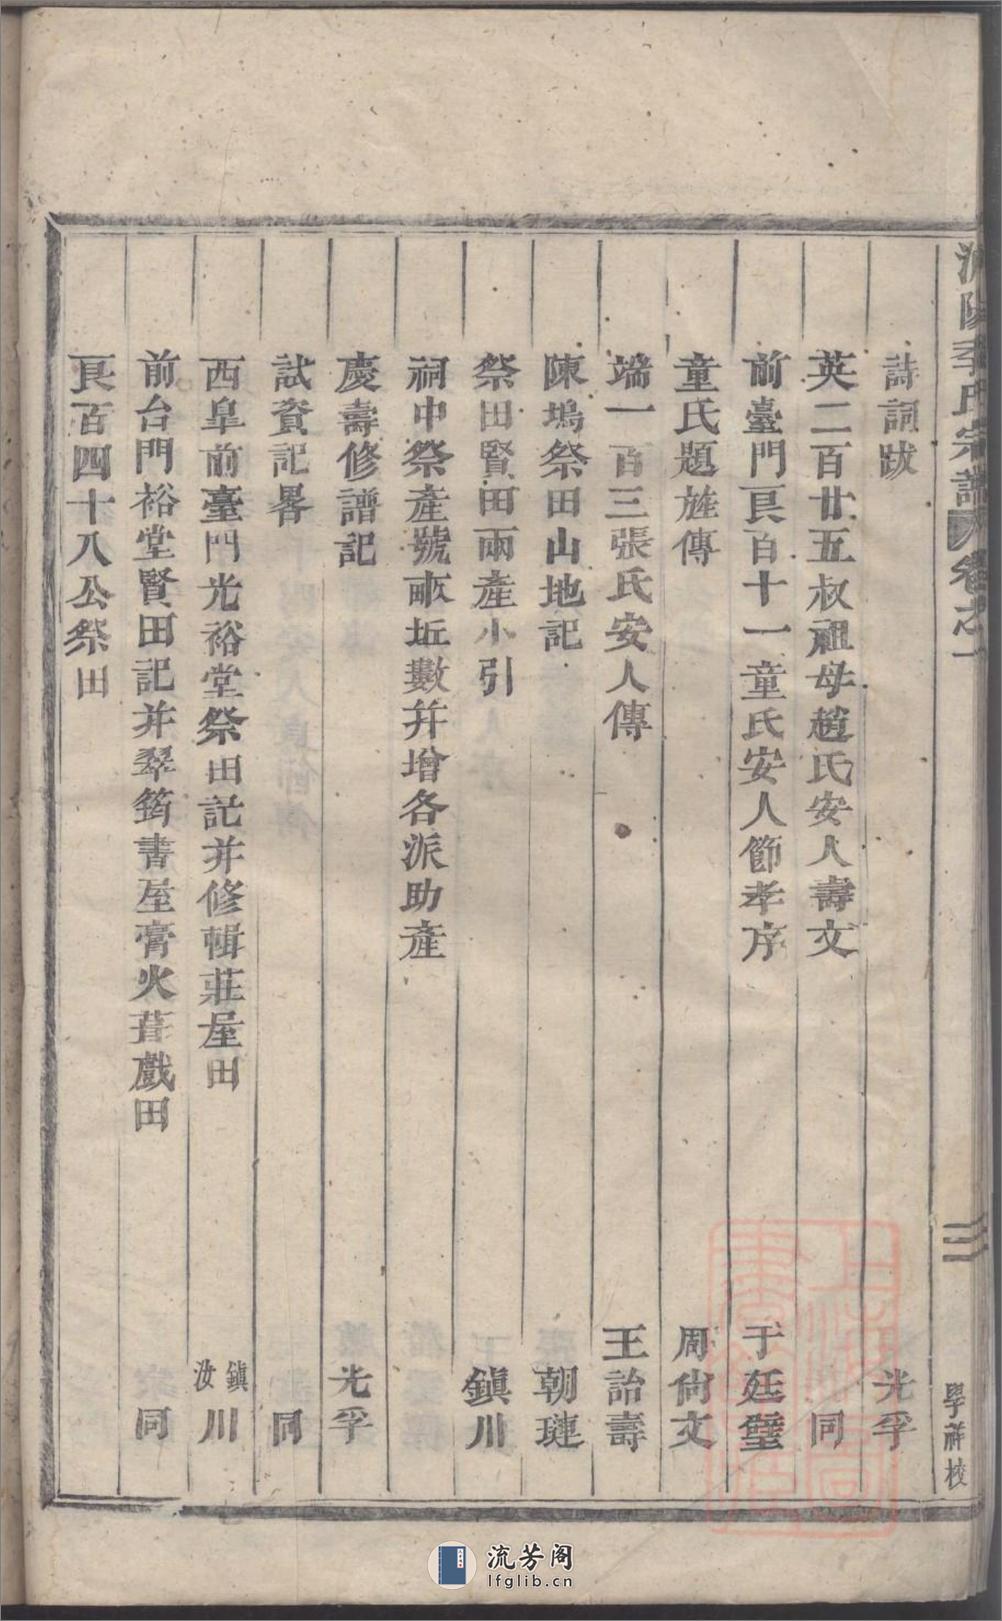 陽李氏宗譜 卷之一 三 學祥校
詩詞跋 光孚
英二百廿五叔祖母趙氏安人壽文 同
前臺門艮百十一童氏安人節孝序 于廷璧
童氏題旌傳 周尙文
端一百三張氏安人傳 王詒壽
陳塢祭田山地記 朝璉
祭田賢田兩產小引 鎭川
祠中祭產號畝坵數并增各派助產
慶壽修譜記 光孚
試資記畧 同
西臯前臺門光裕堂祭田記并修輯莊屋田 鎭汝川
前台門裕堂賢田記并翠筠書屋膏火葺戲田 同
艮百四十八公祭田
流芳阁
lfglib.cn